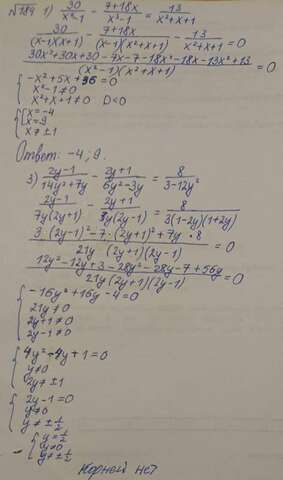 №189 1) 30/(x²-1) - (7+18x)/(x³-1) = 13/(x²+x+1)
30/((x-1)(x+1)) - (7+18x)/((x-1)(x²+x+1)) - 13/(x²+x+1) = 0
(30x²+30x+30-7x-7-18x²-18x-13x²+13)/((x²-1)(x²+x+1)) = 0
{ -x²+5x+36=0
x²-1≠0
x²+x+1≠0 D<0
{ [ x=-4
x=9
x≠±1
Ответ: -4; 9.
3) (2y-1)/(14y²+7y) - (2y+1)/(6y²-3y) = 8/(3-12y²)
(2y-1)/(7y(2y+1)) - (2y+1)/(3y(2y-1)) = 8/(3(1-2y)(1+2y))
(3·(2y-1)²-7·(2y+1)²+7y·8)/(21y(2y+1)(2y-1)) = 0
(12y²-12y+3-28y²-28y-7+56y)/(21y(2y+1)(2y-1)) = 0
{ -16y²+16y-4=0
21y≠0
2y+1≠0
2y-1≠0
{ 4y²-4y+1=0
y≠0
2y≠±1
{ 2y-1=0
y≠0
y≠±1/2
{ y=1/2
y≠0
y≠±1/2
Корней нет